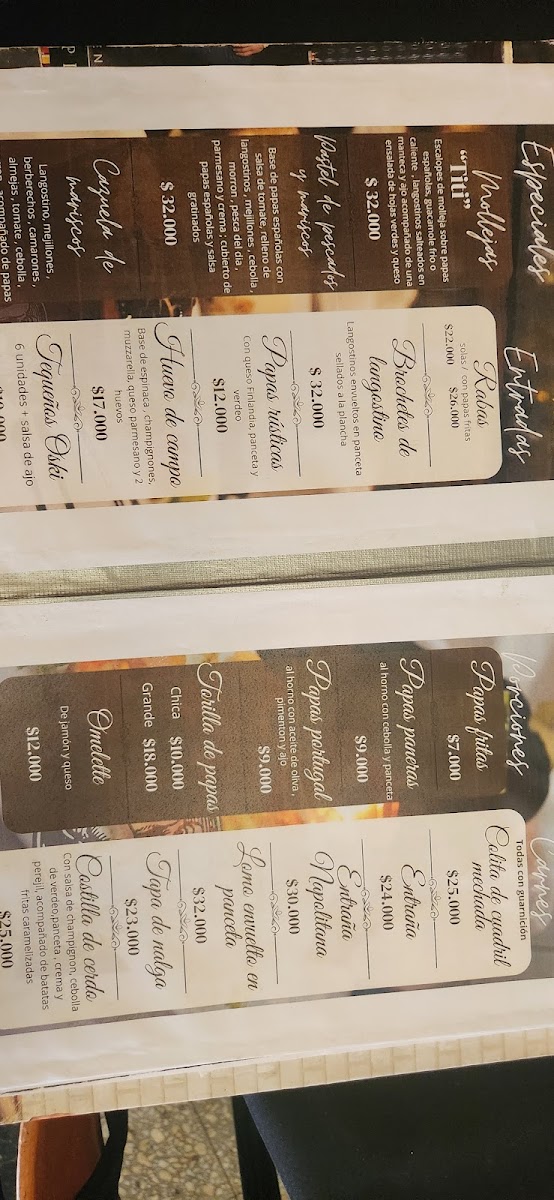 Especiales
Mollejas
"Titi"
Escalopes de molleja sobre papas
españolas, guacamole frío o
caliente, langostinos salteados en
manteca y ajo acompañado de una
ensalada de hojas verdes y queso
$ 32.000
Pastel de pescados
y mariscos
Base de papas españolas con
salsa de tomate, relleno de
langostinos, mejillones, cebolla,
morron, pesca del dia
parmesano y crema, cubierto de
papas españolas y salsa
gratinados
$ 32.000
Cazuela de
mariscos
Langostino, mejillones,
berberechos, camarones,
almejas, tomate, cebolla,
acompañado de papas
Entradas
Rabas
solas / con papas fritas
$22.000 $26.000
Brochetes de
langostino
Langostinos envueltos en panceta
sellados a la plancha
$ 32.000
Papas rústicas
Con queso Finlandia, panceta y
verdeo
$12.000
Huevo de campo
Base de espinaca, champignones,
muzzarella, queso parmesano y 2
huevos
$17.000
Tequeños Oski
6 unidades + salsa de ajo
Porciones
Papas fritas
$7.000
Papas paneras
al horno con cebolla y panceta
$9.000
Papas portugal
al horno con aceite de oliva,
pimenton y ajo
$9.000
Torilla de papas
Chica $10.000
Grande $18.000
Omelette
De jamón y queso
$12.000
Carnes
Todas con guarnición
Colita de cuadril
mechada
$25.000
Entraña
$24.000
Entraña
Napolitana
$30.000
Lomo envuelto en
panceta
$32.000
Tapa de nalga
$23.000
Costilla de cerdo
Con salsa de champignon, cebolla
de verdeo,panceta, crema y
perejil, acompañado de batatas
fritas caramelizadas
$25.000